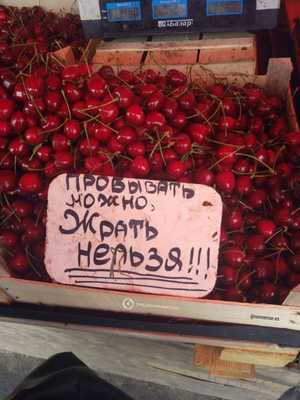 iБазар
ПРОБЫВАТЬ
МОЖНО,
Жрать
нельзя!!!
@nonsense.es